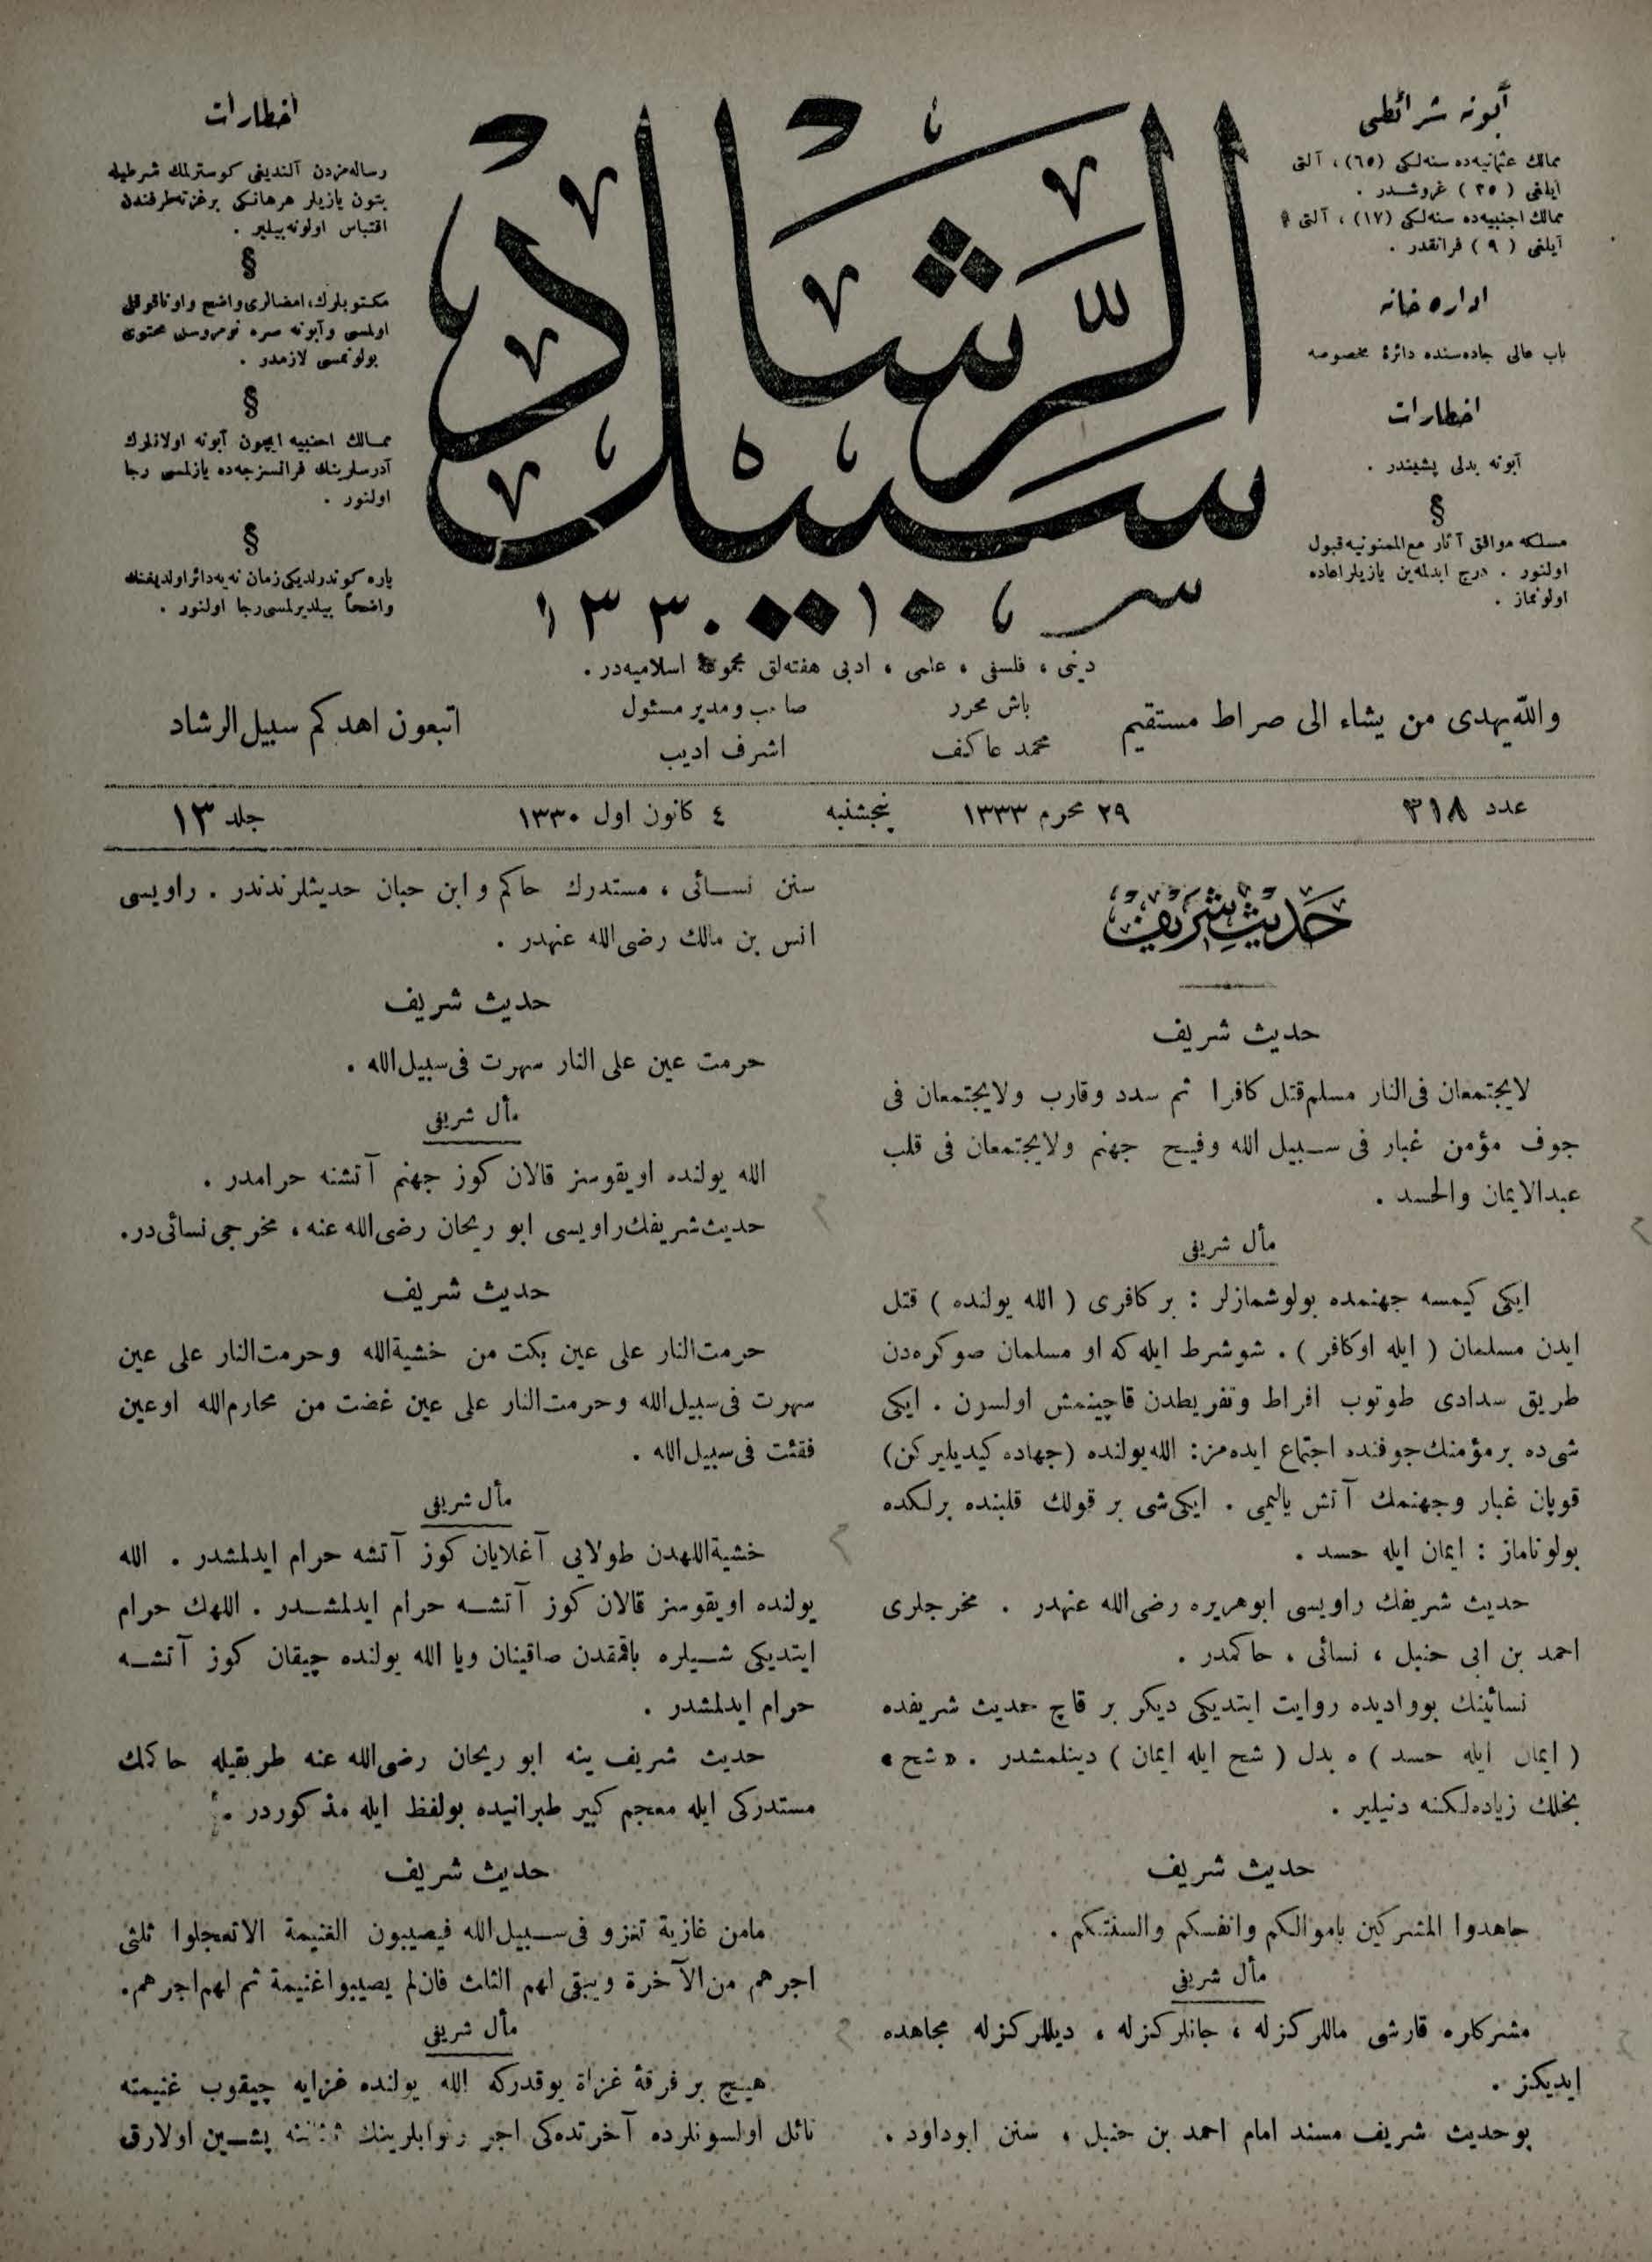 آبونه شرائطی
ممالك عثمانیه‌ده سنه‌لكی (٦٥) ، آلتی
آیلغی ( ٣٥ ) غروشدر .
ممالك اجنبیه‌ده سنه‌لكی (١٧) ، آلتی
آیلغی ( ٩ ) فرانقدر .
اداره خانه
باب عالی جاده‌سنده دائرهٔ مخصوصه
اخطارات
آبونه بدلی پشیندر .
§
مسلكه موافق آثار مع‌الممنونیه قبول
اولنور . درج ایدلمه‌ین یازیلر اعاده
اولونماز .
سبیل الرشاد
١٣٣٠
اخطارات
رساله‌مزدن آلندیغی كوسترلمك شرطیله
بتون یازیلر هرهانكی برغزته‌طرفندن
اقتباس اولونه‌بیلیر .
§
مكتوبلرك، امضالری واضح واوقوناقلی
اولمسی وآبونه صره نومروسنی محتوی
بولونمسی لازمدر .
§
ممالك اجنبیه ایچون آبونه اولانلرك
آدرسلرینك فرانسزجه‌ده یازلمسی رجا
اولنور .
§
پاره كوندرلدیكی زمان نه‌یه دائر اولدیغنك
واضحاً بیلدیرلمسی رجا اولنور .
دینی ، فلسفی ، علمی ، ادبی هفته‌لق مجموعهٔ اسلامیه‌در .
والله یهدی من یشاء الی صراط مستقیم
باش محرر
محمد عاكف
صاحب ومدیر مسئول
اشرف ادیب
اتبعون اهدكم سبیل الرشاد
عدد ٣١٨
٢٩ محرم ١٣٣٣
پنجشنبه
٤ كانون اول ١٣٣٠
جلد ١٣
حدیث شریف
حدیث شریف
لایجتمعان فی‌النار مسلم قتل كافرا ثم سدد وقارب ولایجتمعان فی
جوف مؤمن غبار فی سبیل الله وفیح جهنم ولایجتمعان فی قلب
عبدالایمان والحسد .
مأل شریفی
ایكی كیمسه جهنمده بولوشمازلر : بر كافری ( الله یولنده ) قتل
ایدن مسلمان ( ایله اوكافر ) . شو شرط ایله كه او مسلمان صوكره‌دن
طریق سدادی طوتوب افراط وتفریطدن قاچینمش اولسون . ایكی
شی‌ده بر مؤمنك جوفنده اجتماع ایده‌مز: الله یولنده (جهاده كیدیلیركن)
قوپان غبار وجهنمك آتش یالیمی . ایكی شی بر قولك قلبنده برلكده
بولوناماز : ایمان ایله حسد .
حدیث شریفك راویسی ابوهریره رضی‌الله عنهدر . مخرجلری
احمد بن ابی حنبل ، نسائی ، حاكمدر .
نسائینك بووادیده روایت ایتدیكی دیكر بر قاچ حدیث شریفده
( ایمان ایله حسد ) ه بدل ( شح ایله ایمان ) دینلمشدر . « شح »
بخلك زیاده‌لكنه دنیلیر .
حدیث شریف
جاهدوا المشركین باموالكم وانفسكم والسنتكم .
مأل شریفی
مشركلره قارشی ماللركزله ، جانلركزله ، دیللركزله مجاهده
ایدیكز .
بوحدیث شریف مسند امام احمد بن حنبل ، سنن ابوداود .
سنن نسائی ، مستدرك حاكم و ابن حبان حدیثلرندندر . راویسی
انس بن مالك رضی‌الله عنهدر .
حدیث شریف
حرمت عین علی النار سهرت فی‌سبیل‌الله .
مأل شریفی
الله یولنده اویقوسز قالان كوز جهنم آتشنه حرامدر .
حدیث شریفك راویسی ابو ریحان رضی‌الله عنه ، مخرجی نسائی‌در.
حدیث شریف
حرمت‌النار علی عین بكت من خشیة‌الله وحرمت‌النار علی عین
سهرت فی‌سبیل‌الله وحرمت‌النار علی عین غضت من محارم‌الله اوعین
فقئت فی‌سبیل‌الله .
مأل شریفی
خشیة‌اللهدن طولایی آغلایان كوز آتشه حرام ایدلمشدر . الله
یولنده اویقوسز قالان كوز آتشه حرام ایدلمشدر . اللهك حرام
ایتدیكی شیلره باقمقدن صاقینان ویا الله یولنده چیقان كوز آتشه
حرام ایدلمشدر .
حدیث شریف ینه ابو ریحان رضی‌الله عنه طریقیله حاكمك
مستدركی ایله معجم كبیر طبرانیده بولفظ ایله مذكوردر .
حدیث شریف
مامن غازیة تغزو فی‌سبیل‌الله فیصیبون الغنیمة الاتعجلوا ثلثی
اجرهم من‌الآخرة ویبقی لهم الثلث فان‌لم یصیبوا غنیمة تم لهم اجرهم.
مأل شریفی
هیچ بر فرقهٔ غزاة یوقدركه الله یولنده غزایه چیقوب غنیمته
نائل اولسونلرده آخرتده‌كی اجر وثوابلرینك ثلثنه پشین اولارق